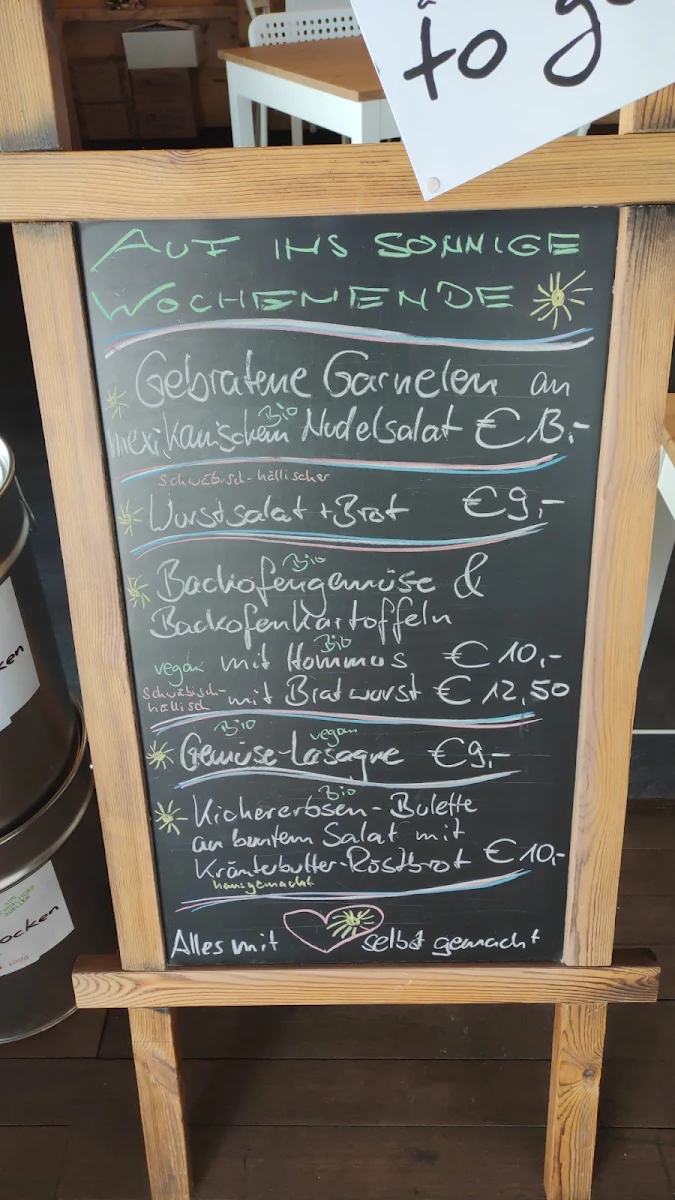 to g
AUF INS SONNIGE
WOCHENENDE
Gebratene Garnelen an
Bio
mexikanischem Nudelsalat € 13,-
Schwäbisch-hällischer
Wurstsalat + Brot € 9,-
Bio
Backofengemüse &
Backofenkartoffeln
Bio
vegan mit Hommus € 10,-
Schwäbisch-
hällisch mit Bratwurst € 12,50
Bio vegan
Gemüse-Lasagne € 9,-
Bio
Kichererbsen-Bulette
an buntem Salat mit
Kräuterbutter-Röstbrot € 10,-
hausgemacht
Alles mit selbst gemacht
ken
ocken
100g